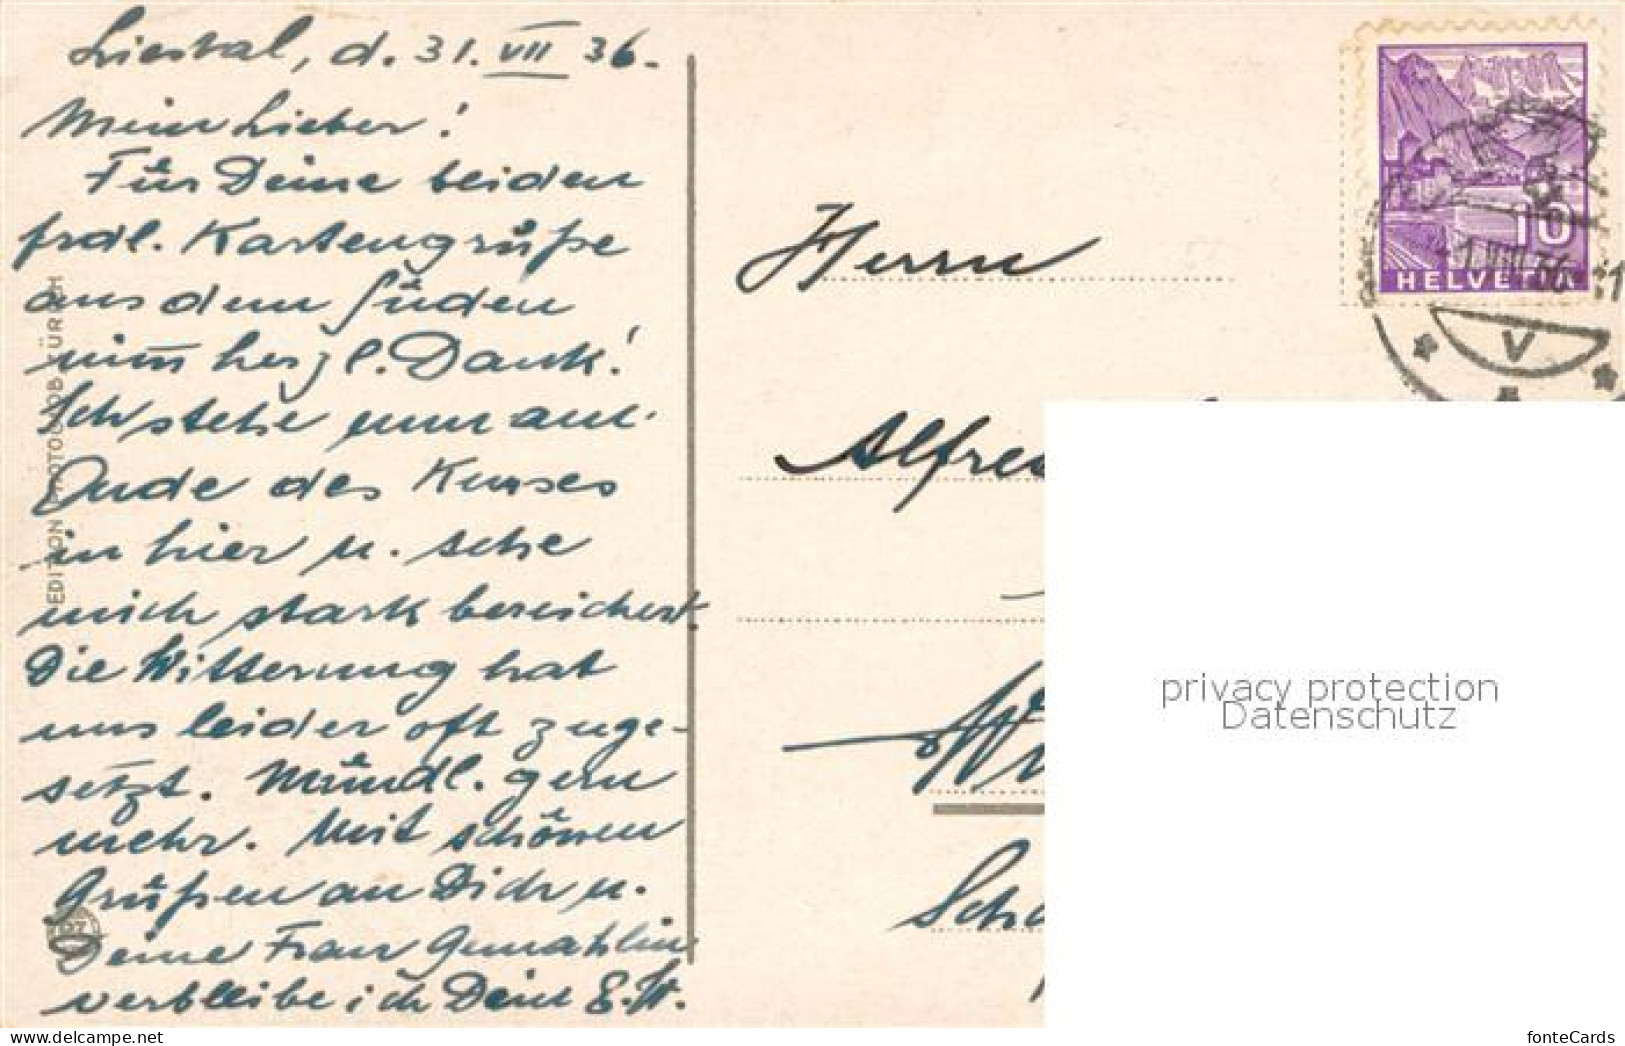 Liestal, d. 31. VII 36.
Mein Lieber!
Für Deine beiden
frdl. Kartengrüße
aus dem Süden
nimm herzl. Dank!
Ich stehe nun am
Ende des Kurses
in hier u. sehe
mich stark bereichert.
Die Witterung hat
uns leider oft zuge-
setzt. Mündl. gern
mehr. Mit schönen
Grüßen an Dich u.
Deine Frau Gemahlin
verbleibe ich Dein E. W.
EDITION PHOTOGLOB ZÜRICH
Herrn
Alfred
Scha
10
HELVETIA
1.VIII.36
V
privacy protection
Datenschutz
fonteCards
my-postcard.ch